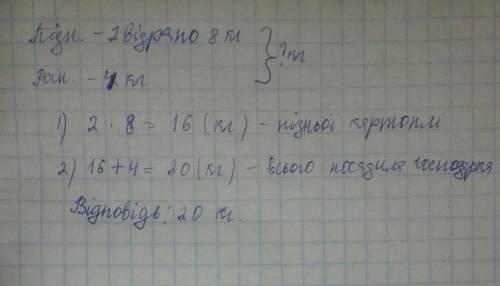 Підн. - 2 відра по 8 кг
? кг
Ран. - 4 кг
1) 2 · 8 = 16 (кг) - пізньої картоплі
2) 16 + 4 = 20 (кг) - всього посадила господарка
Відповідь: 20 кг.